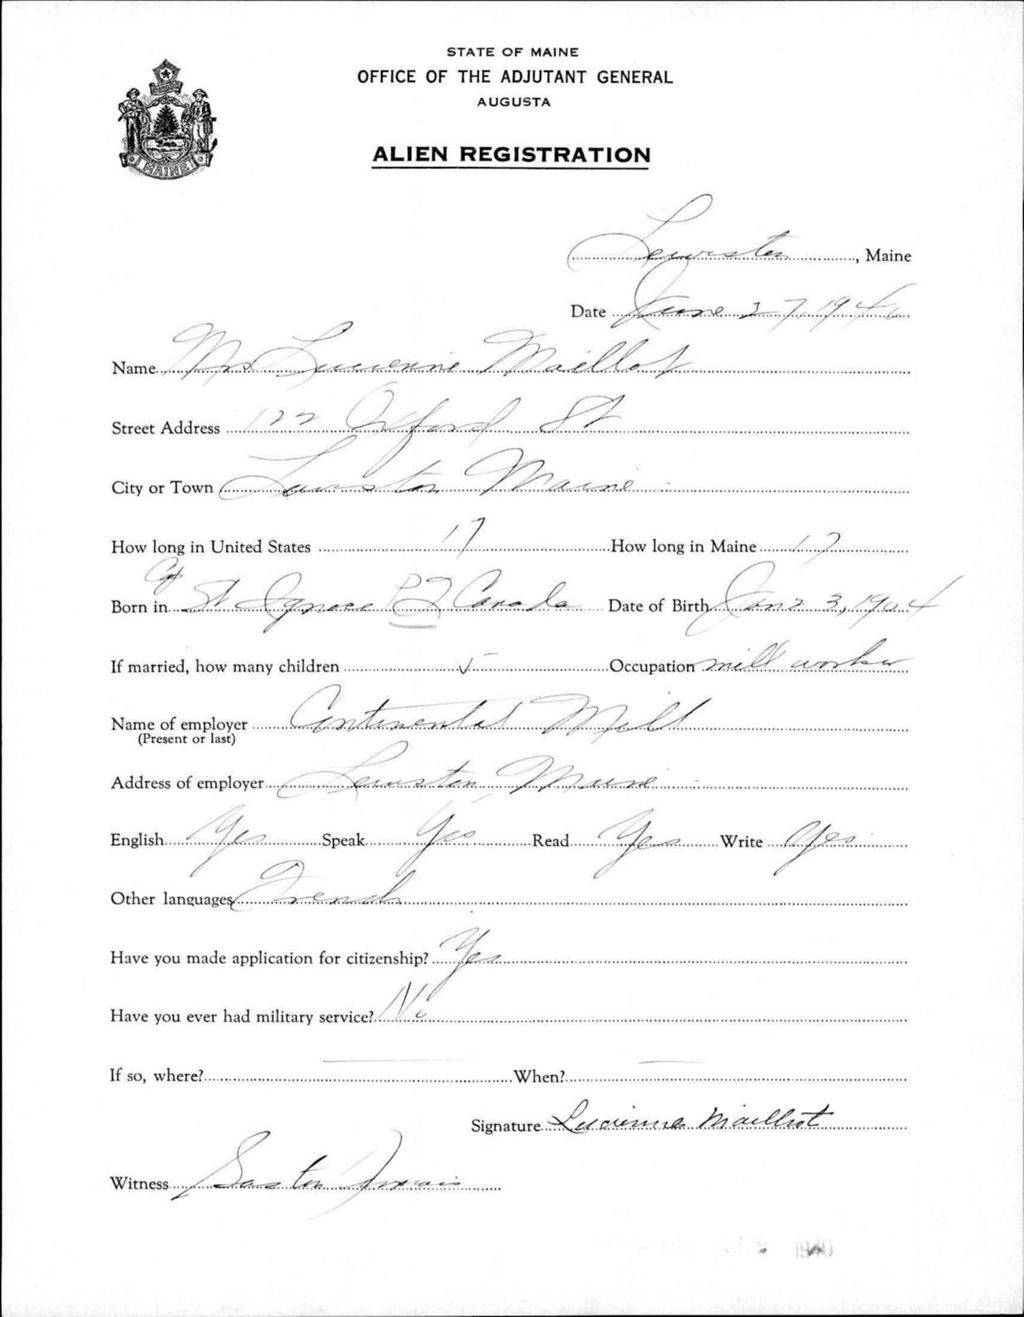 STATE OF MAINE
OFFICE OF THE ADJUTANT GENERAL
AUGUSTA
MAINE
ALIEN REGISTRATION
Lewiston, Maine
Date June 27, 1940
Name Mrs Lucienne Maillot
Street Address 122 Oxford St
City or Town Lewiston Maine
How long in United States 17 How long in Maine 17
Born in St Ignace P2 Canada Date of Birth Jan 23, 1904
If married, how many children Occupation mill worker
Name of employer Continental Mill
(Present or last)
Address of employer Lewiston Maine
English Yes Speak Yes Read Yes Write Yes
Other languages French
Have you made application for citizenship? Yes
Have you ever had military service? No
If so, where? — When? —
Signature Lucienne Mailhot
Witness
1940